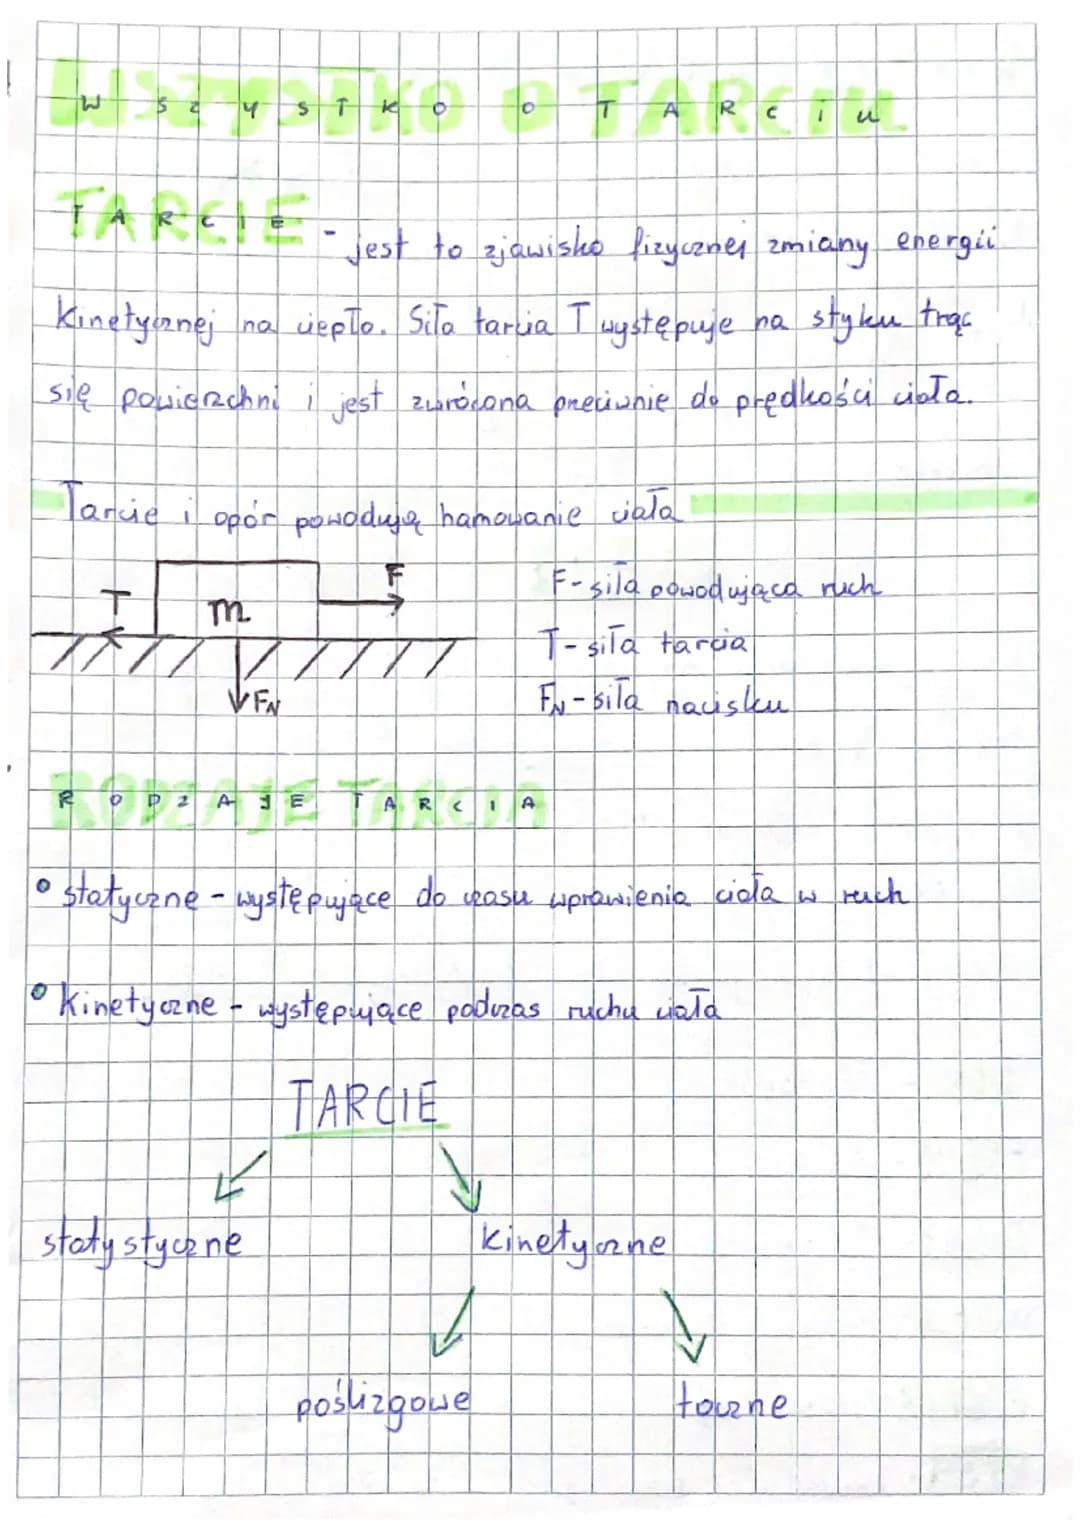 WSZYSTKO O TARCIU
TARCIE - jest to zjawisko fizycznej zmiany energii
Kinetycznej na ciepło. Siła tarcia T występuje na styku trąc
się powierzchni i jest zwrócona przeciwnie do prędkości ciała.
Tarcie i opór powodują hamowanie ciała
T
m
F
FN
F - siła powodująca ruch
T - siła tarcia
FN - siła nacisku
RODZAJE TARCIA
• statyczne - występujące do czasu wprawienia ciała w ruch
• Kinetyczne - występujące podczas ruchu ciała
TARCIE
statystyczne kinetyczne
poślizgowe toczne